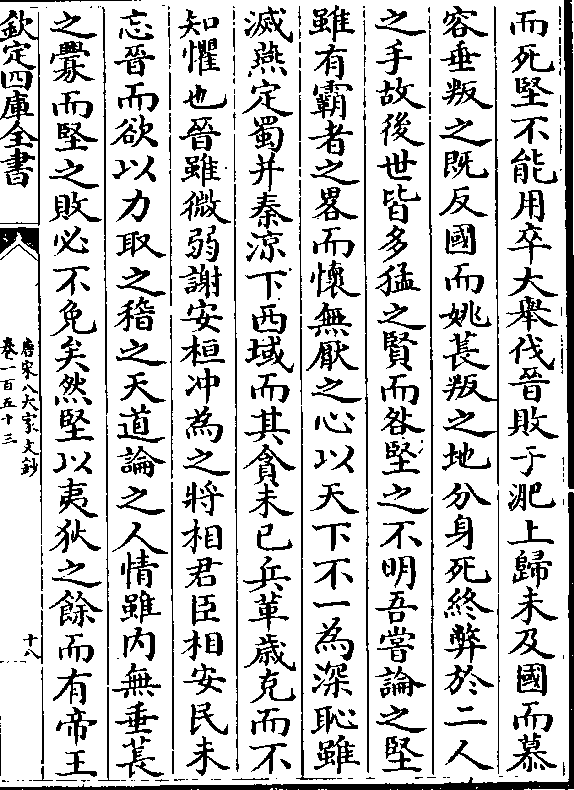 而死堅不能用卒大舉伐晉敗于淝上歸未及國而慕
容垂叛之既反國而姚萇叛之地分身死終弊於二人
之手故後世皆多猛之賢而咎堅之不明吾嘗論之堅
雖有霸者之畧而懷無厭之心以天下不一為深恥雖
滅燕定蜀并秦涼下西域而其貪未已兵革歲克而不
知懼也晉雖微弱謝安桓冲為之將相君臣相安民未
忘晉而欲以力取之稽之天道論之人情雖内無垂萇
之釁而堅之敗必不免矣然堅以夷狄之餘而有帝王
欽定四庫全書
唐宋八大家文鈔
卷一百五十三
十八